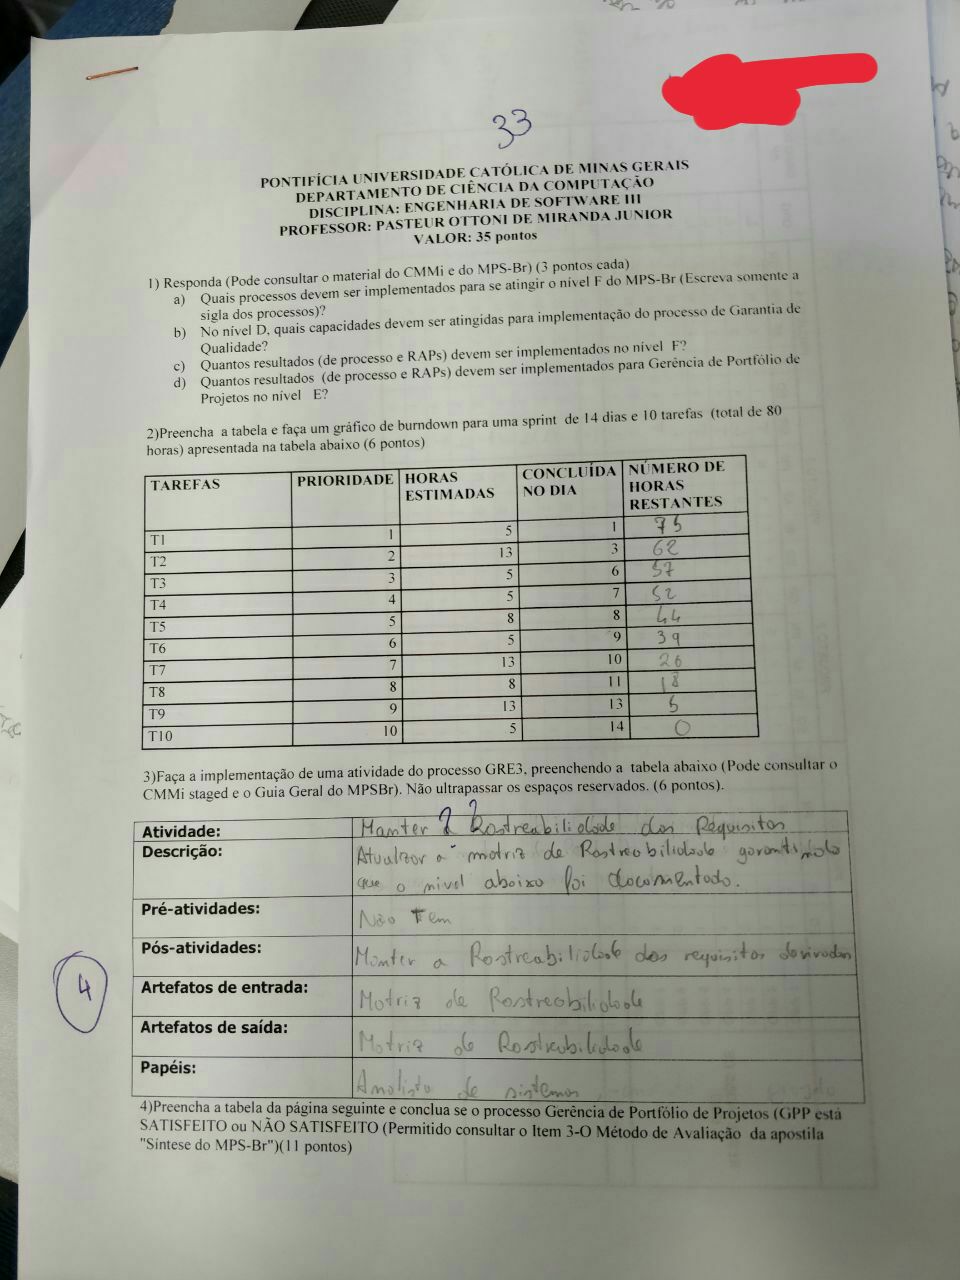 33
PONTIFÍCIA UNIVERSIDADE CATÓLICA DE MINAS GERAIS
DEPARTAMENTO DE CIÊNCIA DA COMPUTAÇÃO
DISCIPLINA: ENGENHARIA DE SOFTWARE III
PROFESSOR: PASTEUR OTTONI DE MIRANDA JUNIOR
VALOR: 35 pontos
1) Responda (Pode consultar o material do CMMi e do MPS-Br) (3 pontos cada)
a) Quais processos devem ser implementados para se atingir o nível F do MPS-Br (Escreva somente a
sigla dos processos)?
b) No nível D, quais capacidades devem ser atingidas para implementação do processo de Garantia de
Qualidade?
c) Quantos resultados (de processo e RAPs) devem ser implementados no nível F?
d) Quantos resultados (de processo e RAPs) devem ser implementados para Gerência de Portfólio de
Projetos no nível E?
2)Preencha a tabela e faça um gráfico de burndown para uma sprint de 14 dias e 10 tarefas (total de 80
horas) apresentada na tabela abaixo (6 pontos)
TAREFAS PRIORIDADE HORAS ESTIMADAS CONCLUÍDA NO DIA NÚMERO DE HORAS RESTANTES
T1 1 5 1 75
T2 2 13 3 62
T3 3 5 6 57
T4 4 5 7 52
T5 5 8 8 44
T6 6 5 9 39
T7 7 13 10 26
T8 8 8 11 18
T9 9 13 13 5
T10 10 5 14 0
3)Faça a implementação de uma atividade do processo GRE3, preenchendo a tabela abaixo (Pode consultar o
CMMi staged e o Guia Geral do MPSBr). Não ultrapassar os espaços reservados. (6 pontos).
Atividade: Manter a Rastreabilidade dos Requisitos
Descrição: Atualizar a matriz de Rastreabilidade garantindo
que o nivel abaixo foi documentado.
Pré-atividades: Não Tem
Pós-atividades: Manter a Rastreabilidade dos requisitos derivados
Artefatos de entrada: Matriz de Rastreabilidade
Artefatos de saída: Matriz de Rastreabilidade
Papéis: Analista de sistemas
4
4)Preencha a tabela da página seguinte e conclua se o processo Gerência de Portfólio de Projetos (GPP está
SATISFEITO ou NÃO SATISFEITO (Permitido consultar o Item 3-O Método de Avaliação da apostila
"Síntese do MPS-Br")(11 pontos)